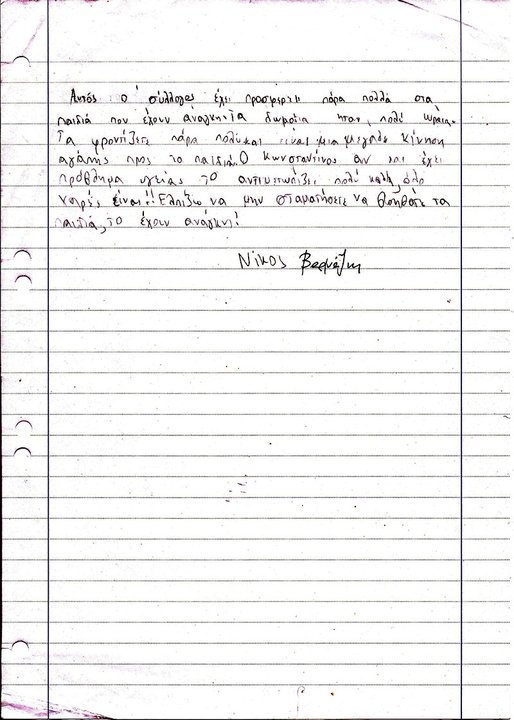 Αυτός ο σύλλογος έχει προσφέρει πάρα πολλά στα
παιδιά που έχουν ανάγκη. Τα δωράκια ήταν πολύ ωραία.
Τα φροντίζετε πάρα πολύ και είναι μια μεγάλη κίνηση
αγάπης προς το παιδιά. Ο Κωνσταντίνος αν και έχει
πρόβλημα υγείας το αντιμετωπίζει πολύ καλά, όλο
χαρές είναι!! Ελπίζω να μην σταματήσετε να βοηθάτε τα
παιδιά, το έχουν ανάγκη!
Νίκος